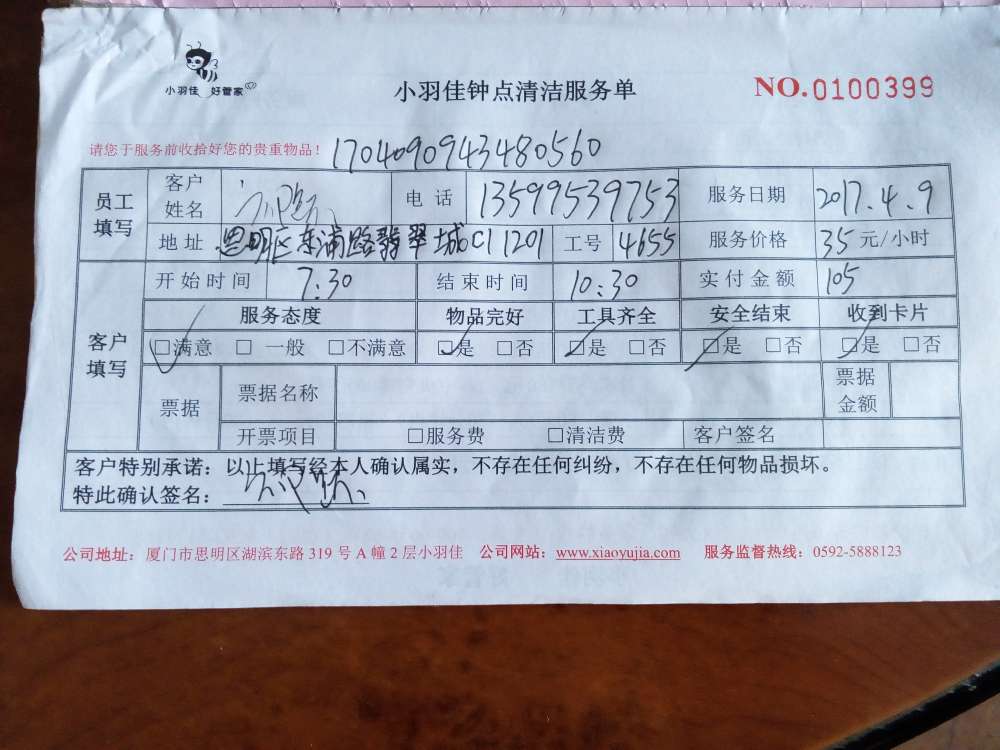 小羽佳 好管家
小羽佳钟点清洁服务单
NO.0100399
请您于服务前收拾好您的贵重物品！ 1704090943480560
员工填写 客户姓名 电话 13599539753 服务日期 2017.4.9
地址 思明区东浦路翡翠城C1 1201 工号 4655 服务价格 35 元/小时
客户填写 开始时间 7:30 结束时间 10:30 实付金额 105
服务态度 物品完好 工具齐全 安全结束 收到卡片
☑满意 □一般 □不满意 ☑是 □否 ☑是 □否 ☑是 □否 ☑是 □否
票据 票据名称 票据金额
开票项目 □服务费 □清洁费 客户签名
客户特别承诺：以上填写经本人确认属实，不存在任何纠纷，不存在任何物品损坏。
特此确认签名：
公司地址：厦门市思明区湖滨东路 319 号 A 幢 2 层小羽佳 公司网站：www.xiaoyujia.com 服务监督热线：0592-5888123